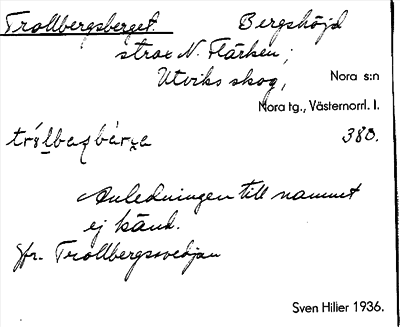 Trollbergsberget. Bergshöjd
strax N. Flärken;
Utviks skog, Nora s:n
Nora tg., Västernorrl. l.
380.
Anledningen till namnet
ej känd.
Jfr. Trollbergssvedjan
Sven Hilier 1936.